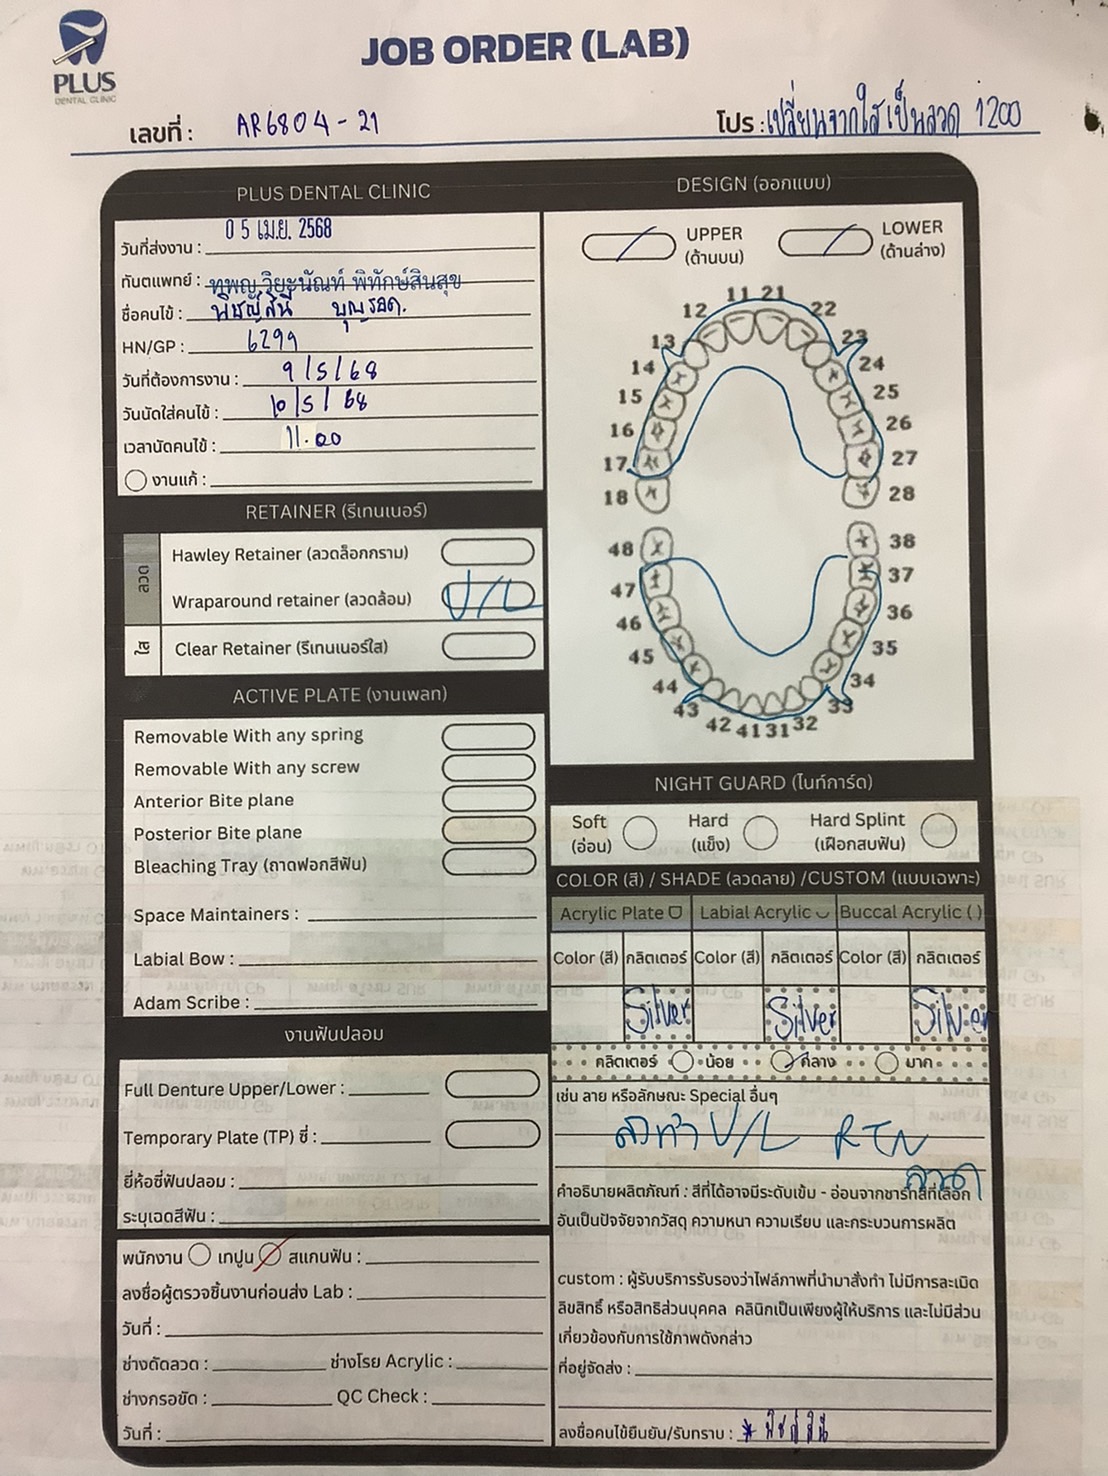 PLUS
DENTAL CLINIC
JOB ORDER (LAB)
เลขที่ : AR6804-21
โปร : เปลี่ยนจากใสเป็นลวด 1200
PLUS DENTAL CLINIC
วันที่ส่งงาน : 05 เม.ย. 2568
ทันตแพทย์ : ทพญ.วิยะนัณท์ พิทักษ์สินสุข
ชื่อคนไข้ : พิชญ์สินี บุญรอด.
HN/GP : 6299
วันที่ต้องการงาน : 9/5/68
วันนัดใส่คนไข้ : 10/5/68
เวลานัดคนไข้ : 11.00
งานแก้ :
RETAINER (รีเทนเนอร์)
ลวด
Hawley Retainer (ลวดล็อกกราม)
Wraparound retainer (ลวดล้อม) U/L
ใส
Clear Retainer (รีเทนเนอร์ใส)
ACTIVE PLATE (งานเพลท)
Removable With any spring
Removable With any screw
Anterior Bite plane
Posterior Bite plane
Bleaching Tray (ถาดฟอกสีฟัน)
Space Maintainers :
Labial Bow :
Adam Scribe :
งานฟันปลอม
Full Denture Upper/Lower :
Temporary Plate (TP) ซี่ :
ยี่ห้อซี่ฟันปลอม :
ระบุเฉดสีฟัน :
พนักงาน เทปูน สแกนฟัน :
ลงชื่อผู้ตรวจชิ้นงานก่อนส่ง Lab :
วันที่ :
ช่างดัดลวด : ช่างโรย Acrylic :
ช่างกรอขัด : QC Check :
วันที่ :
DESIGN (ออกแบบ)
UPPER LOWER
(ด้านบน) (ด้านล่าง)
11 21
12 22
13 23
14 24
15 25
16 26
17 27
18 28
48 38
47 37
46 36
45 35
44 34
43 33
42 41 31 32
NIGHT GUARD (ไนท์การ์ด)
Soft Hard Hard Splint
(อ่อน) (แข็ง) (เฝือกสบฟัน)
COLOR (สี) / SHADE (ลวดลาย) /CUSTOM (แบบเฉพาะ)
Acrylic Plate Labial Acrylic Buccal Acrylic ( )
Color (สี) กลิตเตอร์ Color (สี) กลิตเตอร์ Color (สี) กลิตเตอร์
Silver Silver Silver
กลิตเตอร์ น้อย กลาง มาก
เช่น ลาย หรือลักษณะ Special อื่นๆ
U/L RTN
ลวด
คำอธิบายผลิตภัณฑ์ : สีที่ได้อาจมีระดับเข้ม - อ่อนจากชาร์ทสีที่เลือก
อันเป็นปัจจัยจากวัสดุ ความหนา ความเรียบ และกระบวนการผลิต
custom : ผู้รับบริการรับรองว่าไฟล์ภาพที่นำมาสั่งทำ ไม่มีการละเมิด
ลิขสิทธิ์ หรือสิทธิส่วนบุคคล คลินิกเป็นเพียงผู้ให้บริการ และไม่มีส่วน
เกี่ยวข้องกับการใช้ภาพดังกล่าว
ที่อยู่จัดส่ง :
ลงชื่อคนไข้ยืนยัน/รับทราบ : * พิชญ์สินี